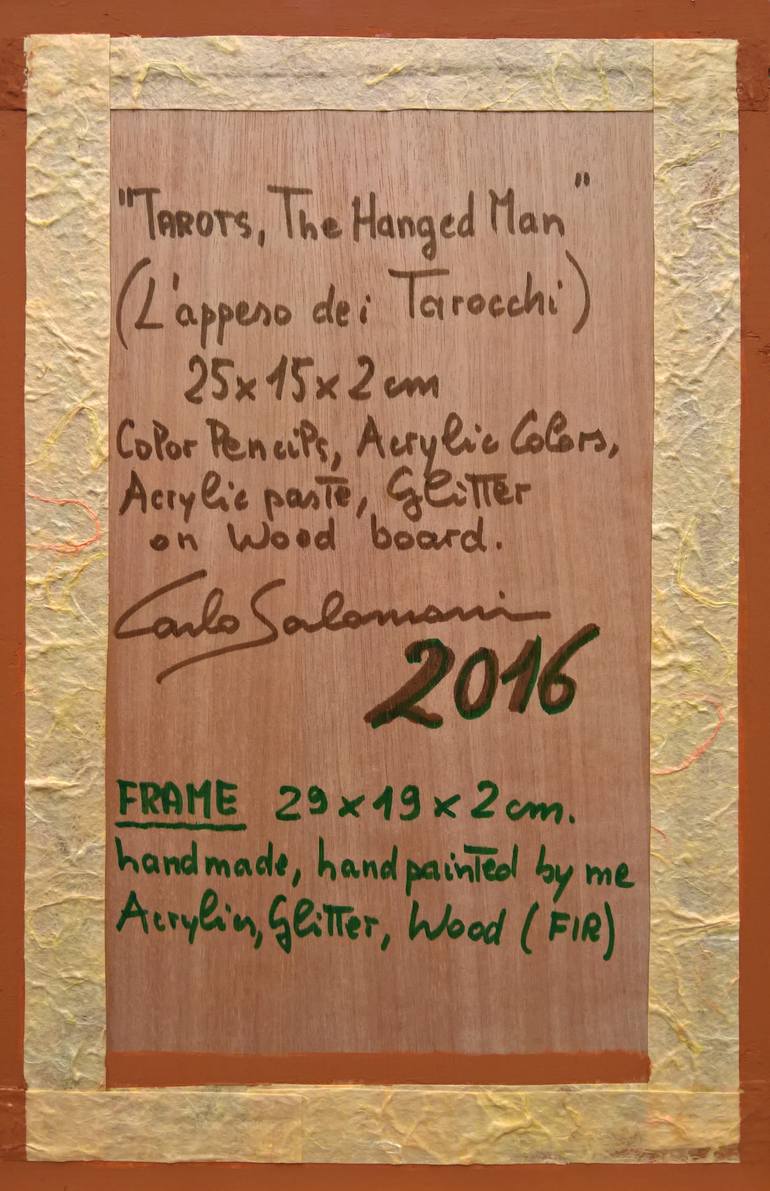 "TAROTS, The Hanged Man"
(L'appeso dei Tarocchi)
25x15x2 cm
Color Pencils, Acrylic Colors,
Acrylic paste, Glitter
on Wood board.
Carlo Salomoni
2016
FRAME 29x19x2 cm.
handmade, hand painted by me
Acrylics, Glitter, Wood (FIR)